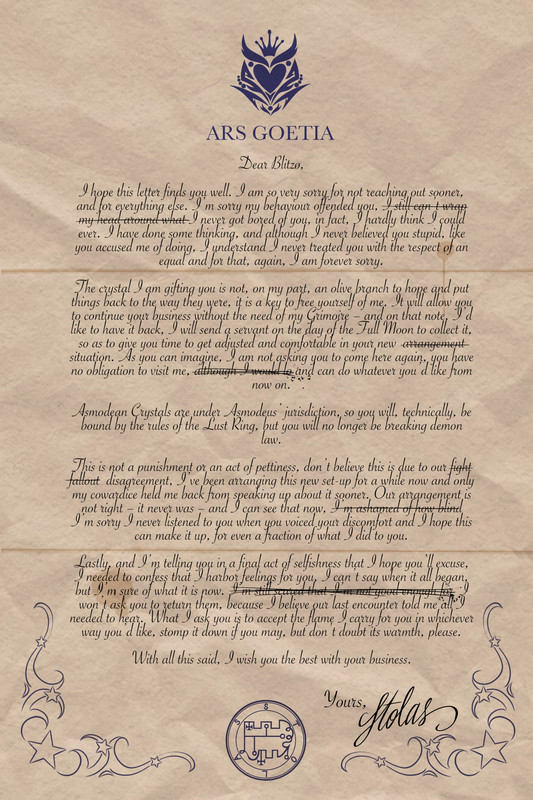 ARS GOETIA
Dear Blitzø,
I hope this letter finds you well. I am so very sorry for not reaching out sooner,
and for everything else. I'm sorry my behaviour offended you, I still can't wrap
my head around what I never got bored of you, in fact, I hardly think I could
ever. I have done some thinking, and although I never believed you stupid, like
you accused me of doing, I understand I never treated you with the respect of an
equal and for that, again, I am forever sorry.
The crystal I am gifting you is not, on my part, an olive branch to hope and put
things back to the way they were, it is a key to free yourself of me. It will allow you
to continue your business without the need of my Grimoire – and on that note, I'd
like to have it back, I will send a servant on the day of the Full Moon to collect it,
so as to give you time to get adjusted and comfortable in your new arrangement
situation. As you can imagine, I am not asking you to come here again, you have
no obligation to visit me, although I would lo and can do whatever you'd like from
now on.
Asmodean Crystals are under Asmodeus' jurisdiction, so you will, technically, be
bound by the rules of the Lust Ring, but you will no longer be breaking demon
law.
This is not a punishment or an act of pettiness, don't believe this is due to our fight
fallout disagreement, I've been arranging this new set-up for a while now and only
my cowardice held me back from speaking up about it sooner. Our arrangement is
not right – it never was – and I can see that now, I'm ashamed of how blind
I'm sorry I never listened to you when you voiced your discomfort and I hope this
can make it up, for even a fraction of what I did to you.
Lastly, and I'm telling you in a final act of selfishness that I hope you'll excuse,
I needed to confess that I harbor feelings for you, I can't say when it all began,
but I'm sure of what it is now. I'm still scared that I'm not good enough for I
won't ask you to return them, because I believe our last encounter told me all I
needed to hear. What I ask you is to accept the flame I carry for you in whichever
way you'd like, stomp it down if you may, but don't doubt its warmth, please.
With all this said, I wish you the best with your business.
Yours, Stolas
S T L